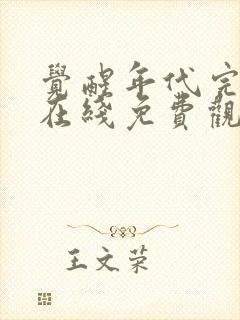 覺醒年代完
在綫免費觀
王文荣